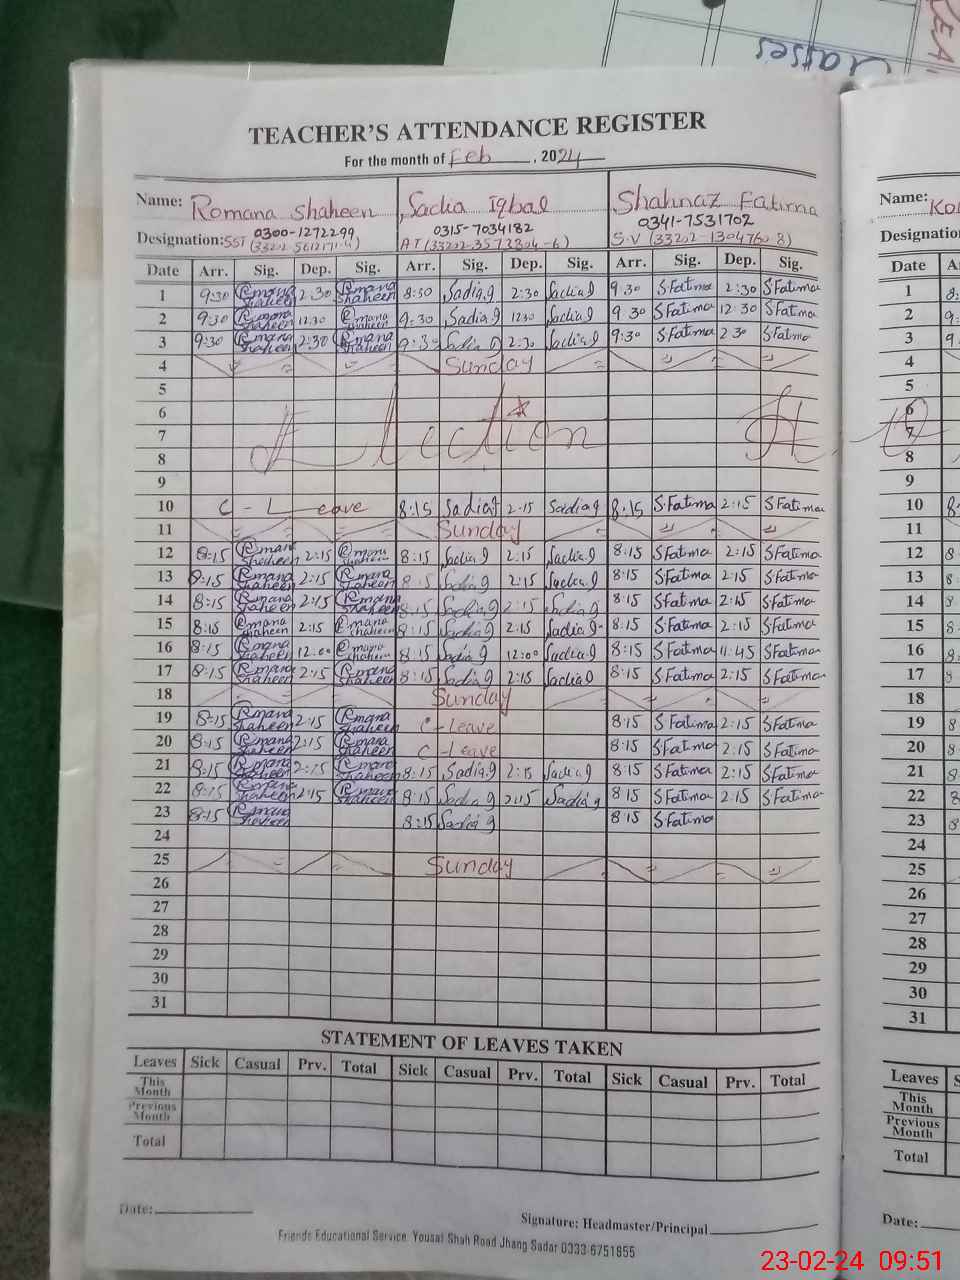 Classes
TEACHER'S ATTENDANCE REGISTER
For the month of Feb, 2024
Name: Romana Shaheen Sadia Iqbal Shahnaz Fatima Name:
Designation: SST 0300-1272299 0315-7034182 0341-7531702 Designation
AT S.V
Date Arr. Sig. Dep. Sig. Arr. Sig. Dep. Sig. Arr. Sig. Dep. Sig. Date
1 9:30 Romana Shaheen 2:30 Romana Shaheen 8:30 Sadia.g 2:30 Sadia g 9:30 SFatima 2:30 SFatima 1
2 9:30 Romana Shaheen 12:30 Romana Shaheen 9:30 Sadia.g 12:30 Sadia g 9:30 SFatima 12:30 SFatima 2
3 9:30 Romana Shaheen 2:30 Romana Shaheen 9:30 Sadia g 2:30 Sadia g 9:30 SFatima 2:30 SFatima 3
4 Sunday 4
5 5
6 6
7 Election 7
8 8
9 9
10 C-Leave 8:15 Sadia g 2:15 Sadia g 8:15 SFatima 2:15 SFatima 10
11 Sunday 11
12 8:15 Romana Shaheen 2:15 Romana Shaheen 8:15 Sadia g 2:15 Sadia g 8:15 SFatima 2:15 SFatima 12
13 8:15 Romana Shaheen 2:15 Romana Shaheen 8:15 Sadia g 2:15 Sadia g 8:15 SFatima 2:15 SFatima 13
14 8:15 Romana Shaheen 2:15 Romana Shaheen 8:15 Sadia g 2:15 Sadia g 8:15 SFatima 2:15 SFatima 14
15 8:15 Romana Shaheen 2:15 Romana Shaheen 8:15 Sadia g 2:15 Sadia g 8:15 SFatima 2:15 SFatima 15
16 8:15 Romana Shaheen 12:00 Romana Shaheen 8:15 Sadia g 12:00 Sadia g 8:15 SFatima 11:45 SFatima 16
17 8:15 Romana Shaheen 2:15 Romana Shaheen 8:15 Sadia g 2:15 Sadia g 8:15 SFatima 2:15 SFatima 17
18 Sunday 18
19 8:15 Romana Shaheen 2:15 Romana Shaheen C-Leave 8:15 SFatima 2:15 SFatima 19
20 8:15 Romana Shaheen 2:15 Romana Shaheen C-Leave 8:15 SFatima 2:15 SFatima 20
21 8:15 Romana Shaheen 2:15 Romana Shaheen 8:15 Sadia.g 2:15 Sadia g 8:15 SFatima 2:15 SFatima 21
22 8:15 Romana Shaheen 2:15 Romana Shaheen 8:15 Sadia g 2:15 Sadia g 8:15 SFatima 2:15 SFatima 22
23 8:15 Romana Shaheen 8:15 Sadia g 8:15 SFatima 23
24 24
25 Sunday 25
26 26
27 27
28 28
29 29
30 30
31 31
STATEMENT OF LEAVES TAKEN
Leaves Sick Casual Prv. Total Sick Casual Prv. Total Sick Casual Prv. Total Leaves
This Month This Month
Previous Month Previous Month
Total Total
Date: Signature: Headmaster/Principal Date:
Friends Educational Service. Yousaf Shah Road Jhang Sadar 0333 6751855
23-02-24 09:51